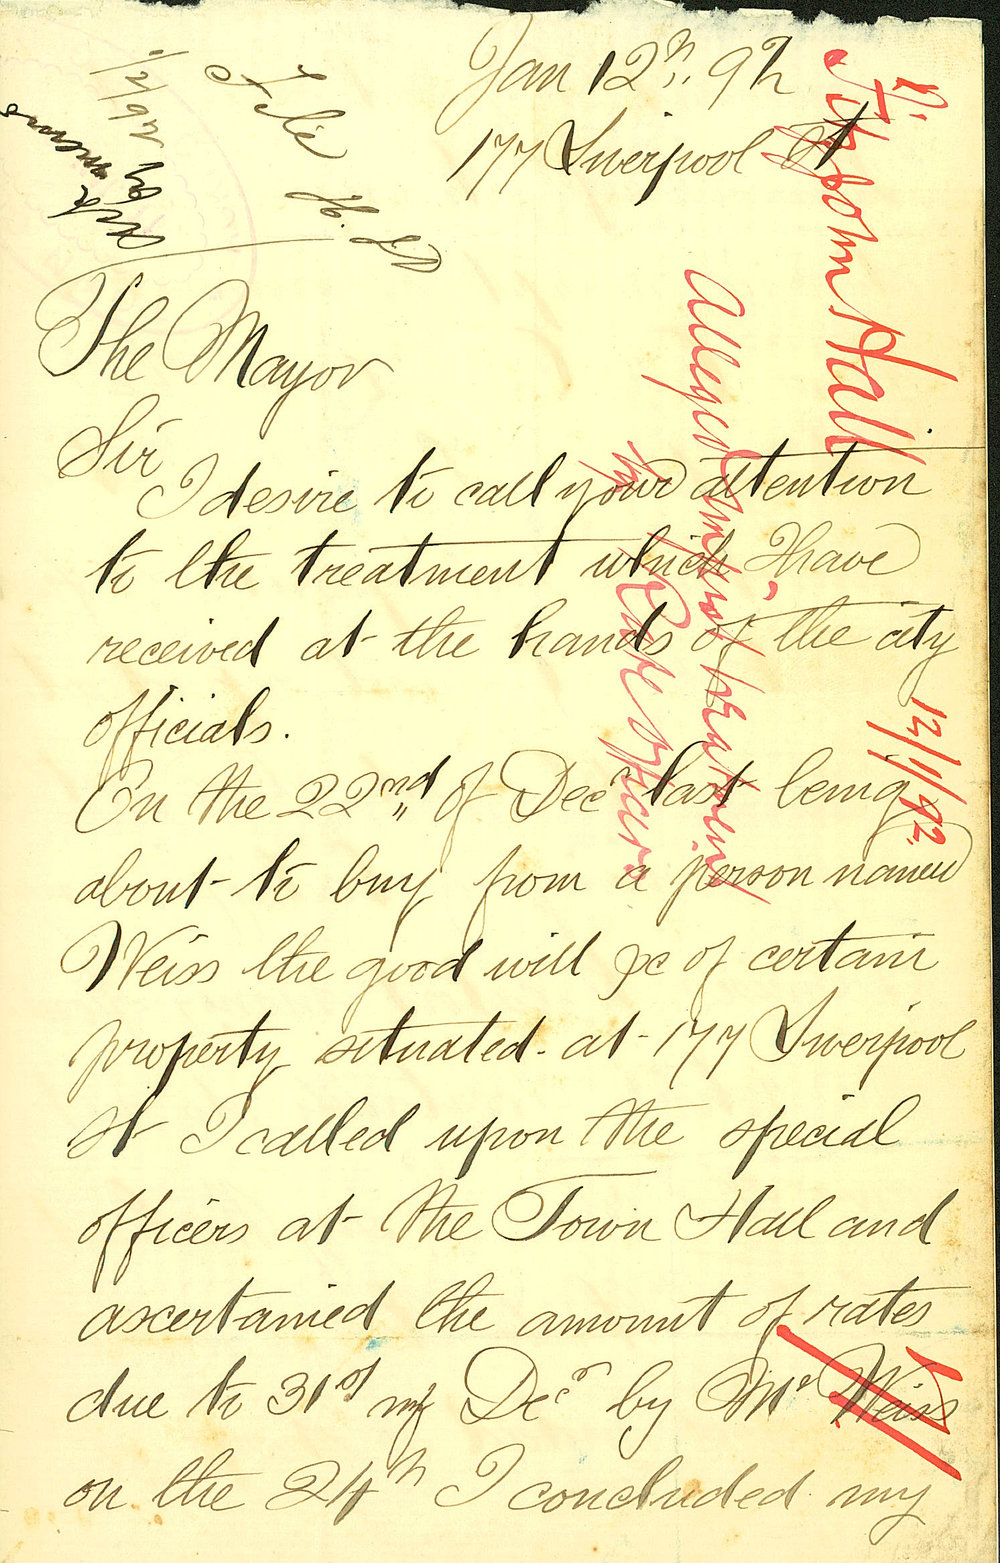 Jan 12th. 92
177 Liverpool St
The Mayor
Sir
I desire to call your attention
to the treatment which I have
received at the hands of the city
officials.
On the 22nd of Decr last being
about to buy from a person named
Weiss the good will &c of certain
property situated at 177 Liverpool
St I called upon the special
officers at the Town Hall and
ascertained the amount of rates
due to 31st of Decr by Mr Weiss
on the 24th I concluded my
File H.D
Town Hall
Alleged unjust treatment
by Rate officers
12/1/92